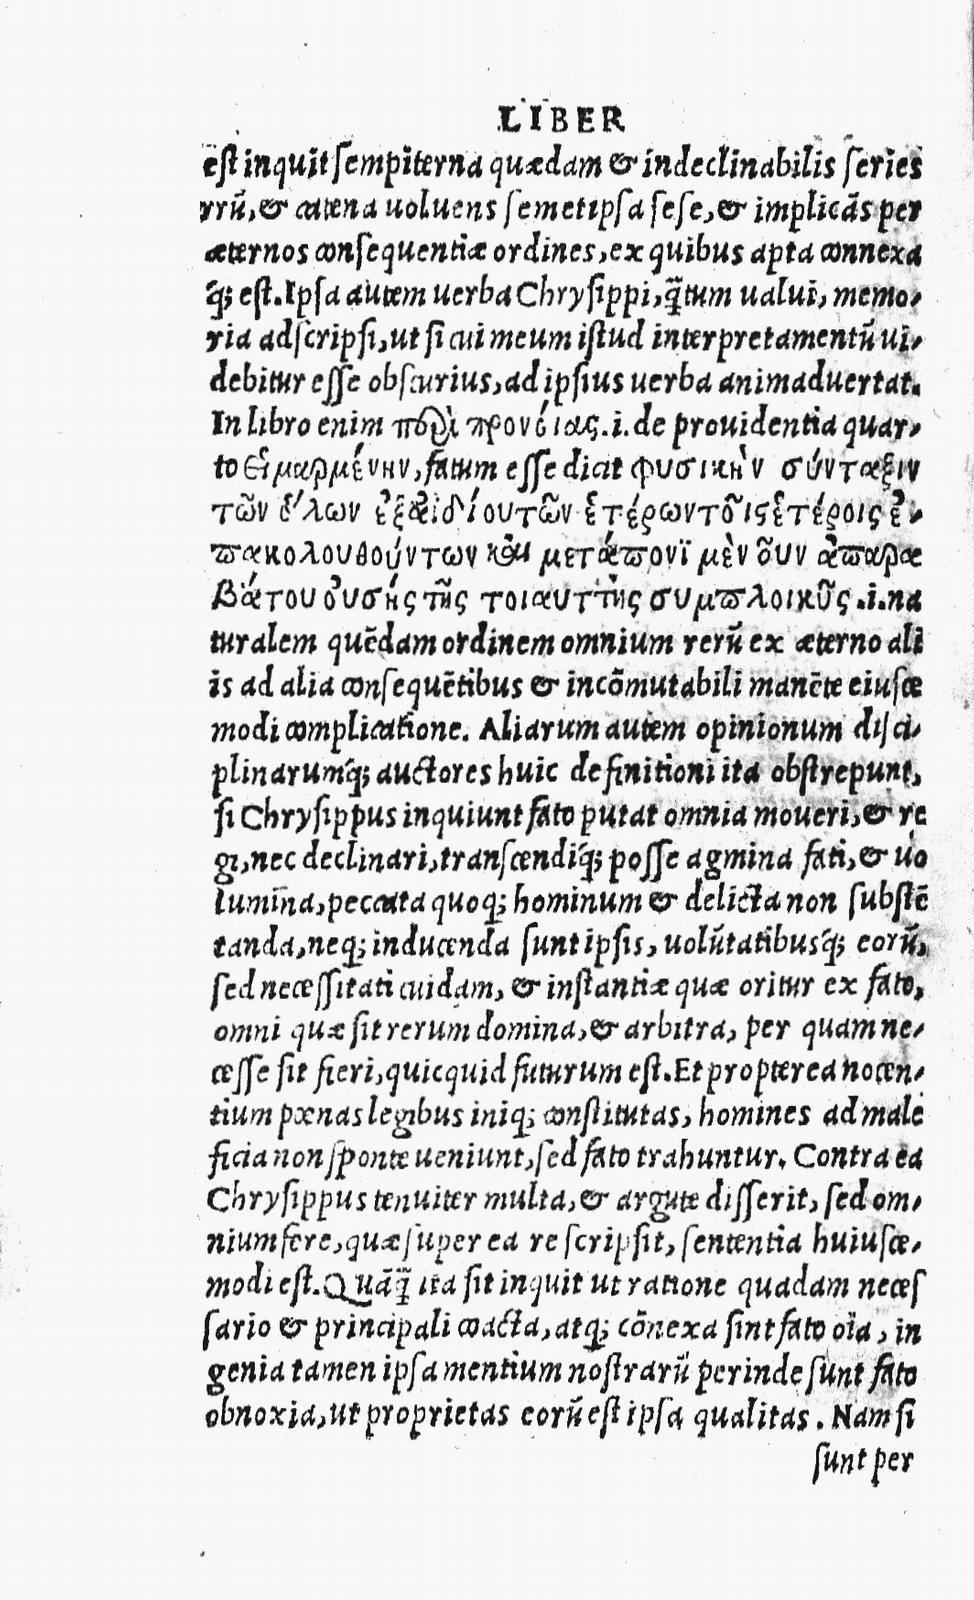 LIBER
est inquit sempiterna quædam & indeclinabilis series
rrũ, & catena uoluens semetipsa sese, & implicãs per
æternos consequentiæ ordines, ex quibus apta connexa
q́; est. Ipsa autem uerba Chrysippi, q̃tum ualui, memo-
ria adscripsi, ut si cui meum istud interpretamentũ ui-
debitur esse obscurius, ad ipsius uerba animaduertat.
In libro enim περὶ προνοίας .i. de prouidentia quar-
to Εἱμαρμένην, fatum esse dicit φυσικὴν σύνταξιν
τῶν ὅλων ἐξ ἀϊδίου τῶν ἑτέρων το͂ις ἑτέροις ἐ-
πακολουθούντων καὶ μετάπονϊ μὲν ο͂υν ἀπαρα
βάτου ὀυσής τῆς τοιαυτ τῆς συμπλοικῆς .i. na
turalem quẽdam ordinem omnium rerũ ex æterno ali
is ad alia consequẽtibus & incõmutabili manẽte eiusce
modi complicatione. Aliarum autem opinionum disci-
plinarumq́; auctores huic definitioni ita obstrepunt,
si Chrysippus inquiunt fato putat omnia moueri, & re
gi, nec declinari, transcendiq́; posse agmina fati, & uo
lumina, peccata quoq; hominum & delicta non substẽ
tanda, neq; inducenda sunt ipsis, uolũtatibusq́; eorũ,
sed necessitati cuidam, & instantiæ quæ oritur ex fato,
omni quæ sit rerum domina, & arbitra, per quam ne-
cesse sit fieri, quicquid futurum est. Et propterea nocen-
tium pœnas legibus iniq; constitutas, homines ad male
ficia non sponte ueniunt, sed fato trahuntur. Contra ea
Chrysippus tenuiter multa, & argute disserit, sed om-
nium fere, quæ super ea re scripsit, sententia huiusce-
modi est. Quãq̃ ita sit inquit ut ratione quadam neces
sario & principali coacta, atq; cõnexa sint fato oĩa, in
genia tamen ipsa mentium nostrarũ perinde sunt fato
obnoxia, ut proprietas eorũ est ipsa qualitas. Nam si
sunt per